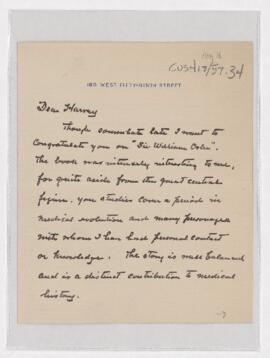 CUSH17/57.34
180 WEST FIFTY-NINTH STREET
Dear Harvey
Though somewhat late I want to
congratulate you on "Sir William Osler".
The book was intensely interesting to me,
for quite aside from the great central
figure, you studies cover a period in
medical evolution and many personages
with whom I have had personal contact
or knowledge. The story is well balanced
and is a distinct contribution to medical
history.